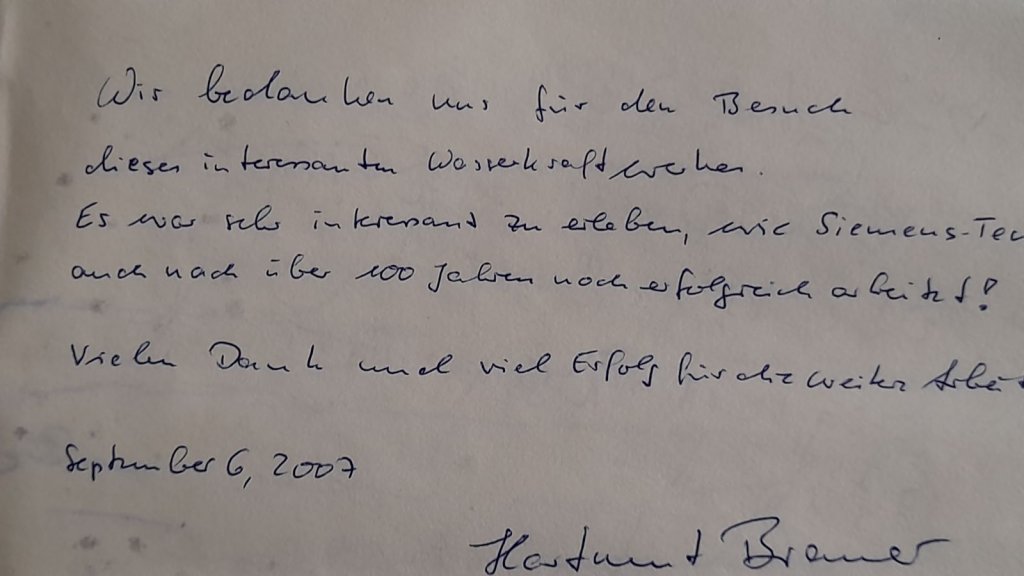 Wir bedanken uns für den Besuch
dieses interessanten Wasserkraftwerkes.
Es war sehr interessant zu erleben, wie Siemens-Tec
auch nach über 100 Jahren noch erfolgreich arbeitet!
Vielen Dank und viel Erfolg für die weitere Arbeit
September 6, 2007
Hartmut